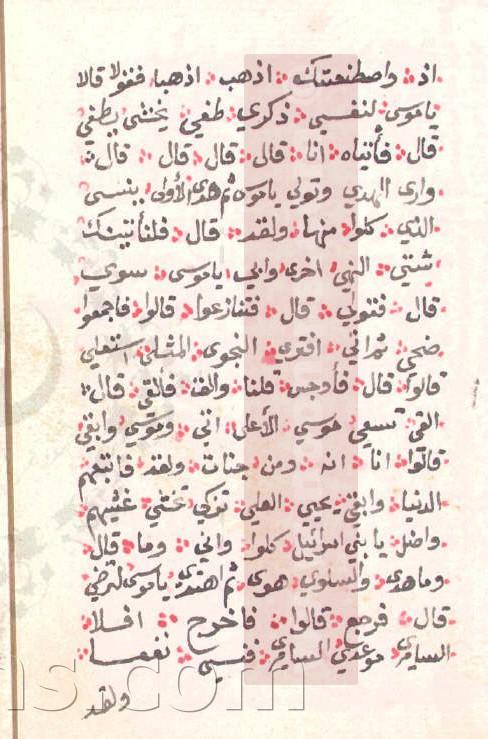 اذ واصطنعتك اذهب اذهبا فقولا قالا
ياموسى لنفسي ذكري طغى يخشى يطغى
قال فأتياه انا قال قال قال قال
وارى الهدى وتولى ياموسى ثم هدى الأولى ينسى
الذي كلوا منها ولقد قال فلنأتينك
شتى النهى اخرى وابى ياموسى سوى
قال فتولى قال فتنازعوا قالوا فاجمعوا
ضحى ثم اتى افترى النجوى المثلى استعلى
قالوا قال فأوجس قلنا والق فألقي قال
القى تسعى موسى الأعلى اتى وموسى وابقى
قالوا انا انه ومن جنات ولقد فاتبعهم
الدنيا وابقى يحيى العلى تزكى تخشى غشيهم
واضل يا بني اسرائيل كلوا واني وما قال
وما هدى والسلوى هوى ثم اهتدى ياموسى لترضى
قال فرجع قالوا فاخرج افلا
السامري موعدي السامري فنسي نفعا
ولقد